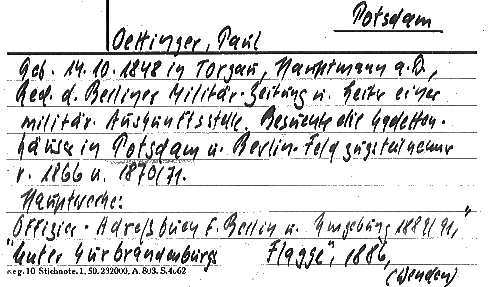 Potsdam
Oettinger, Paul
Geb. 14.10.1848 in Torgau, Hauptmann a.D.,
Red. d. Berliner Militär-Zeitung u. Leiter einer
militär. Auskunftsstelle. Besuchte die Kadetten-
häuser in Potsdam u. Berlin. Feldzugsteilnehmer
v. 1866 u. 1870/71.
Hauptwerke:
Offizier-Adreßbuch f. Berlin u. Umgebung
"Unter Kurbrandenburgs Flagge", 1886,
(Wenden)
Reg. 10 Stichnote. 1. 50. 232000. A. 803. S. 4.62